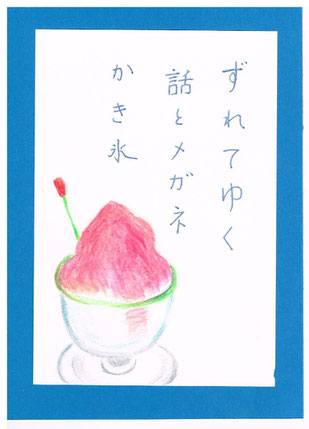 ずれてゆく
話とメガネ
かき氷